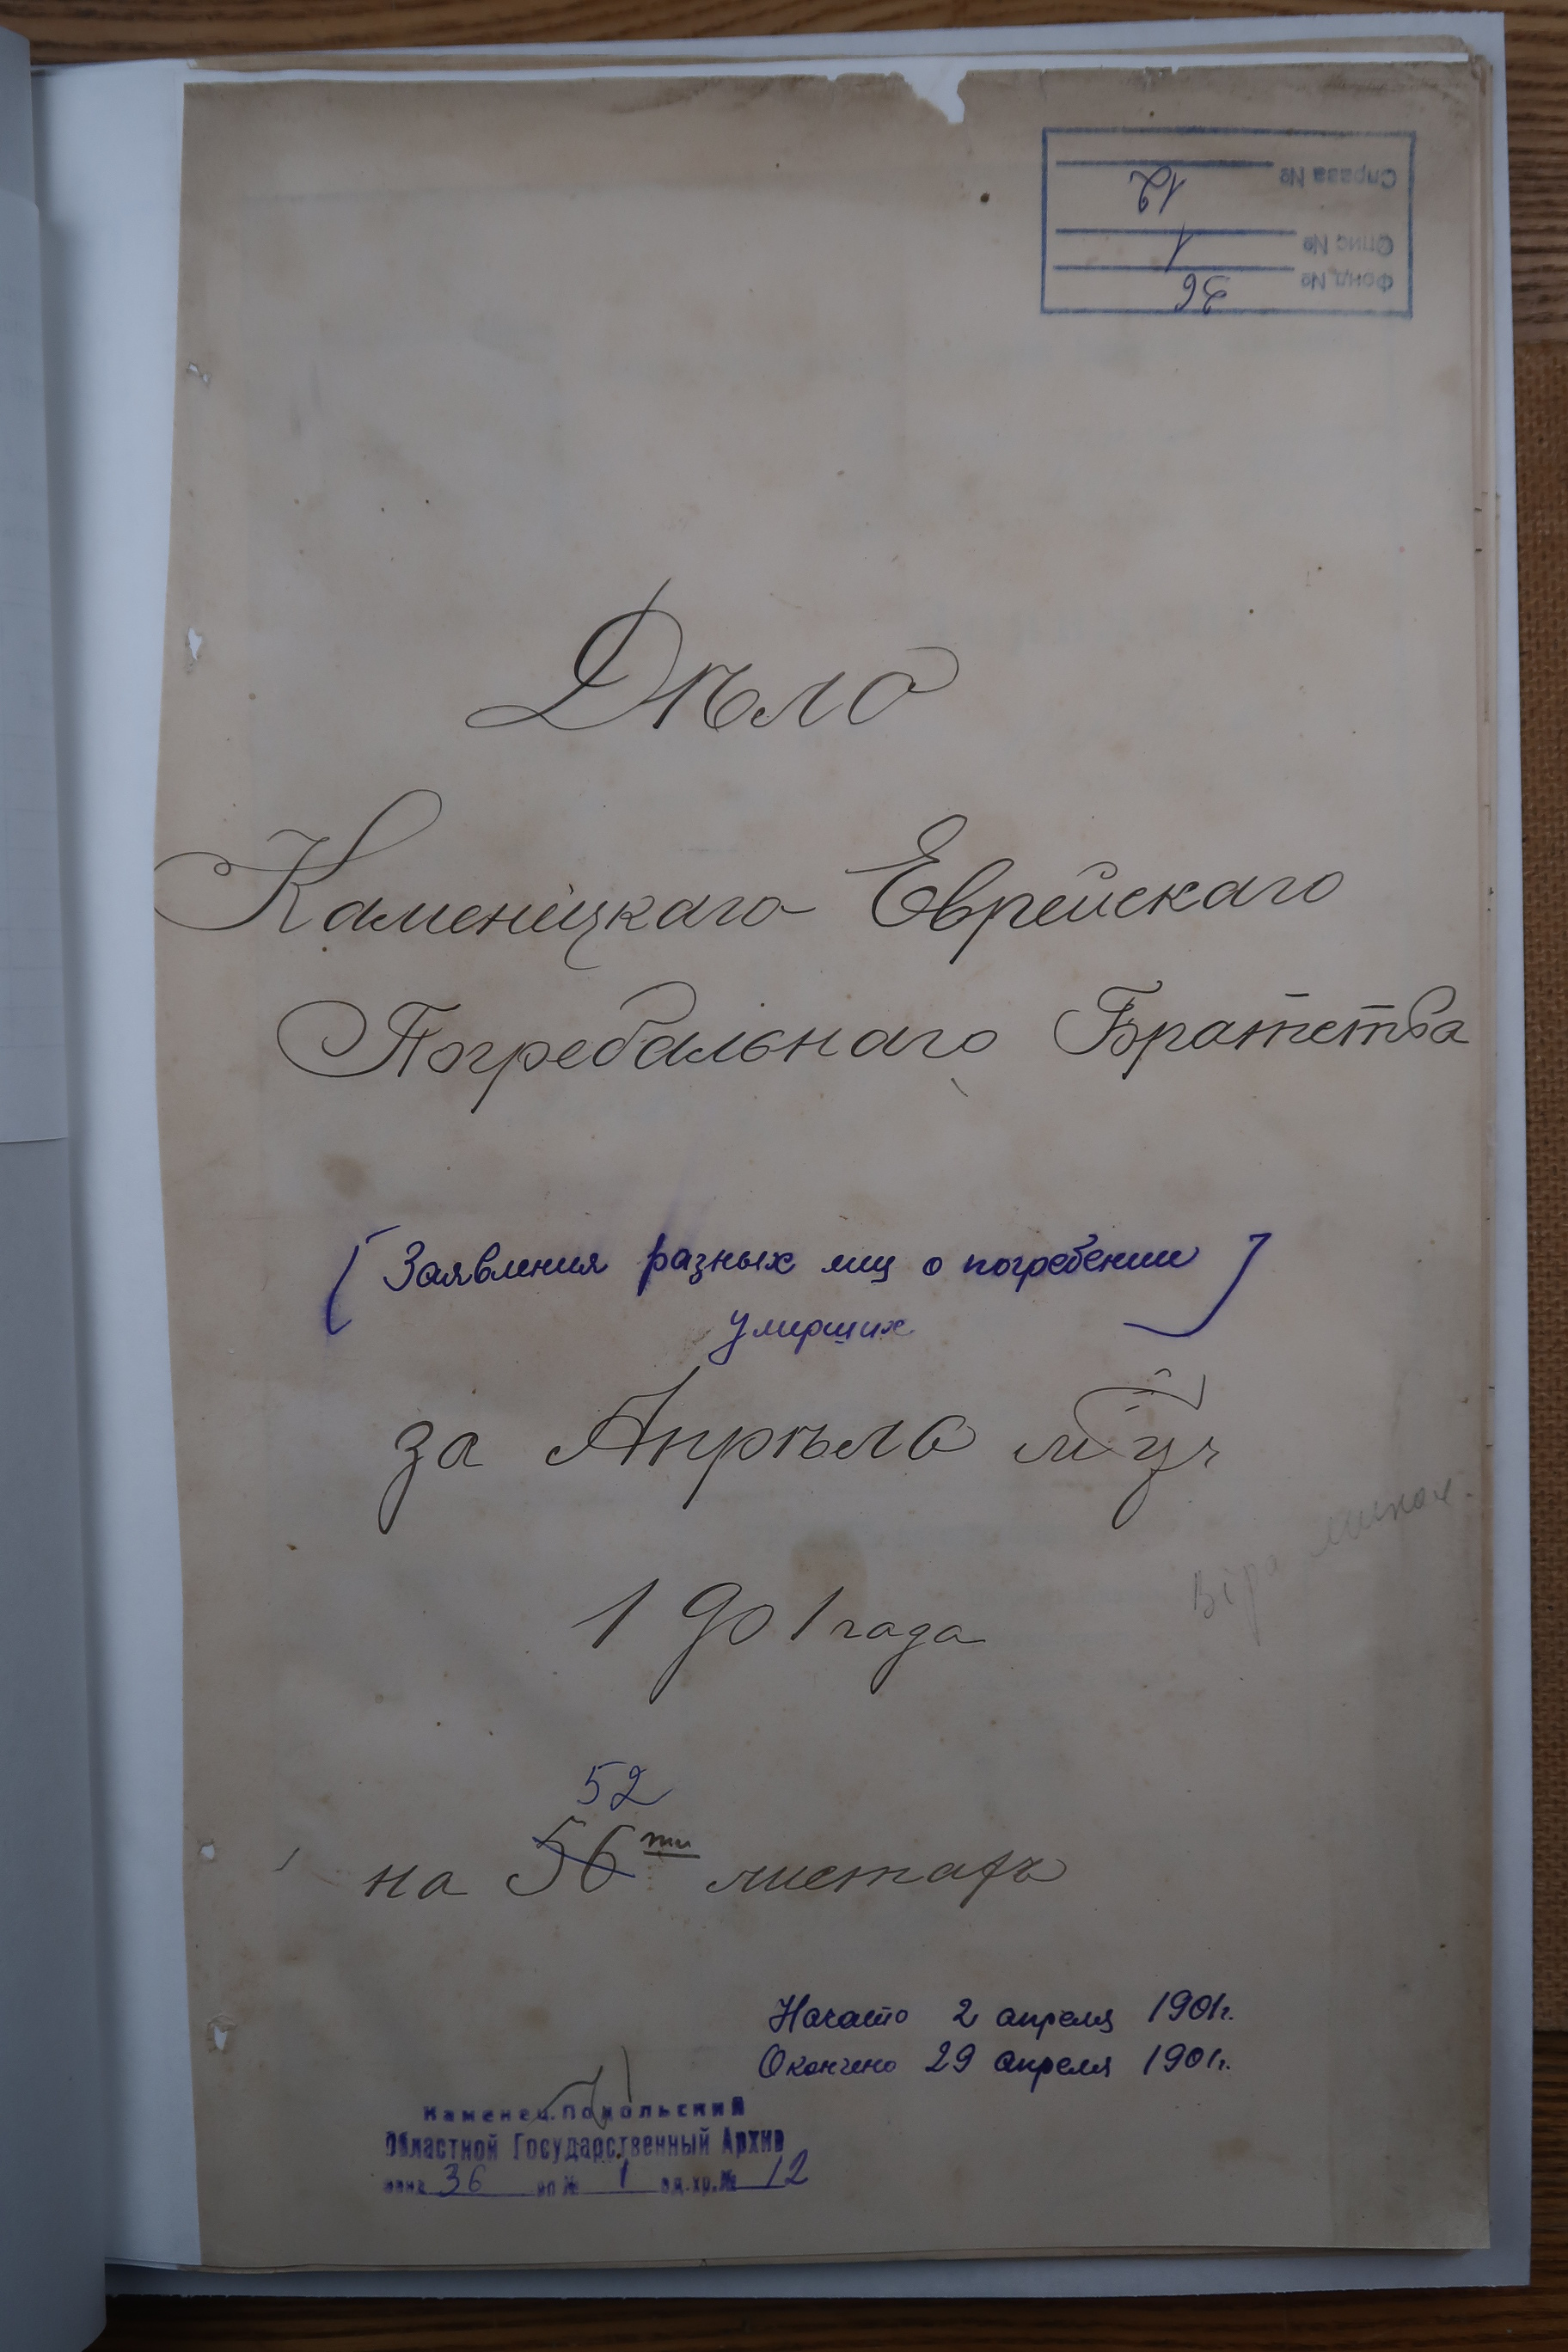 Справа № 12
Опис № 1
Фонд № 36
Дѣло
Каменецкаго Еврейскаго
Погребальнаго Братства
[ Заявления разных лиц о погребении ]
умерших
за Апрѣль м-цъ
1901 года
52
на 56ти листахъ
Начато 2 апреля 1901г.
Окончено 29 апреля 1901г.
Каменец-Подольский
Областной Государственный Архив
фонд 36 оп № 1 ед.хр.№ 12